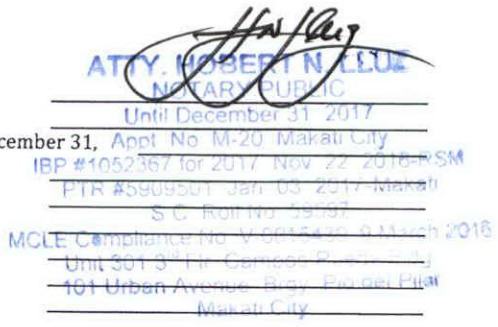 ATTY. HOBERT N. LLUZ
NOTARY PUBLIC
Until December 31 2017
cember 31, Appt No M-20 Makati City
IBP #1052367 for 2017 Nov 22 2016-RSM
PTR #5909501 Jan 03 2017-Makati
S C Roll No 59597
MCLE Compliance No V-0015439 9 March 2016
Unit 301 3rd Flr Campos Bldg
101 Urban Avenue Brgy Pio del Pilar
Makati City